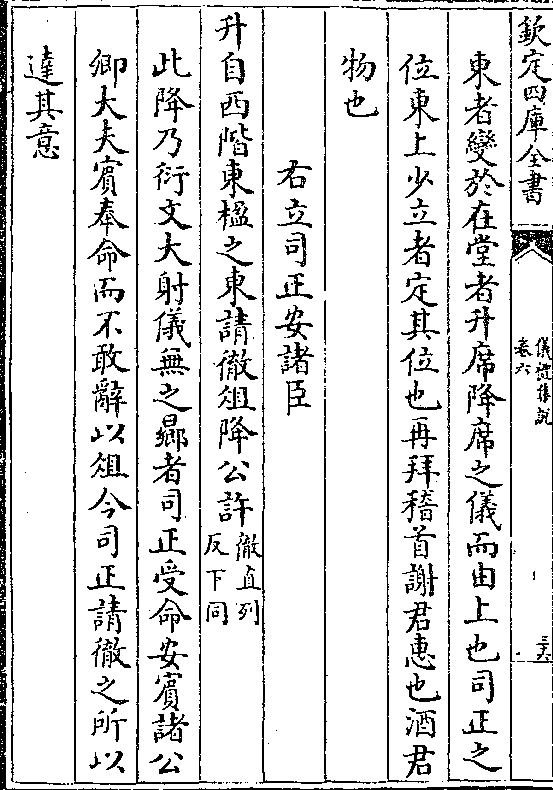 欽定四庫全書
儀禮集說
卷六
三六
東者變於在堂者升席降席之儀而由上也司正之
位東上少立者定其位也再拜稽首謝君惠也酒君
物也
右立司正安諸臣
升自西階東楹之東請徹俎降公許徹直列反下同
此降乃衍文大射儀無之曏者司正受命安賓諸公
卿大夫賓奉命而不敢辭以俎今司正請徹之所以
達其意